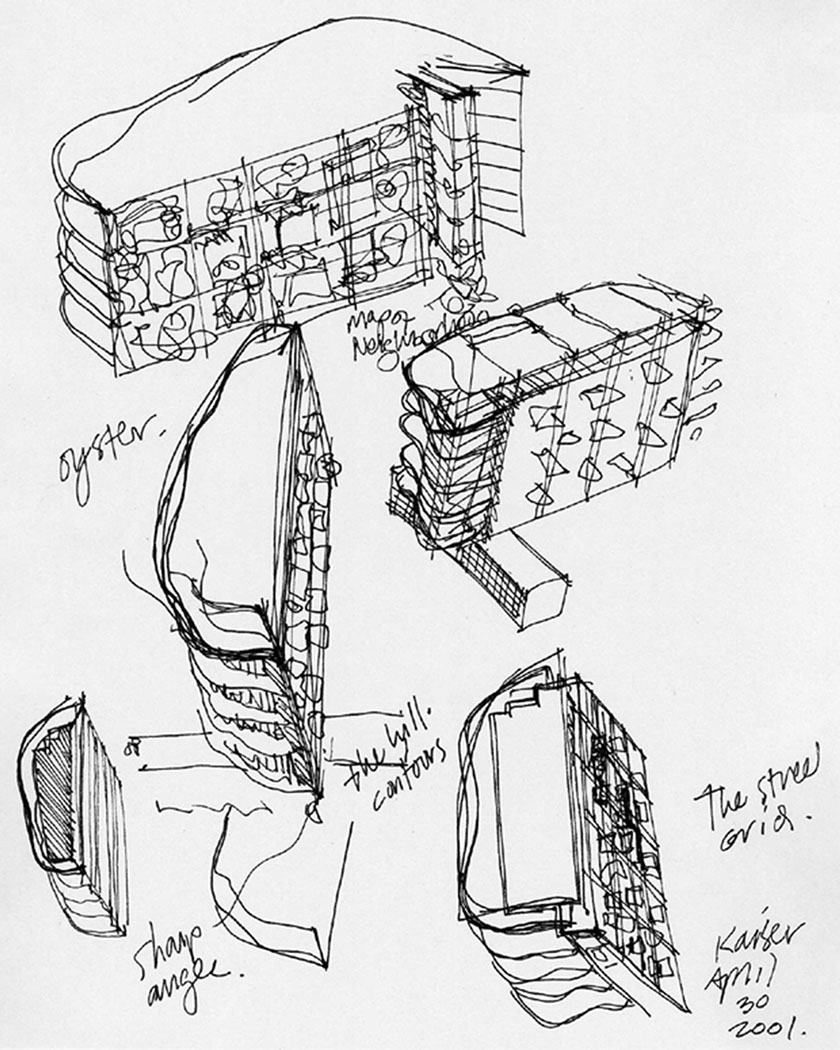 Major
Neighborhood
oyster.
the hill.
contours
The street
Grid.
sharp
angle.
Kaiser
April
30
2001.